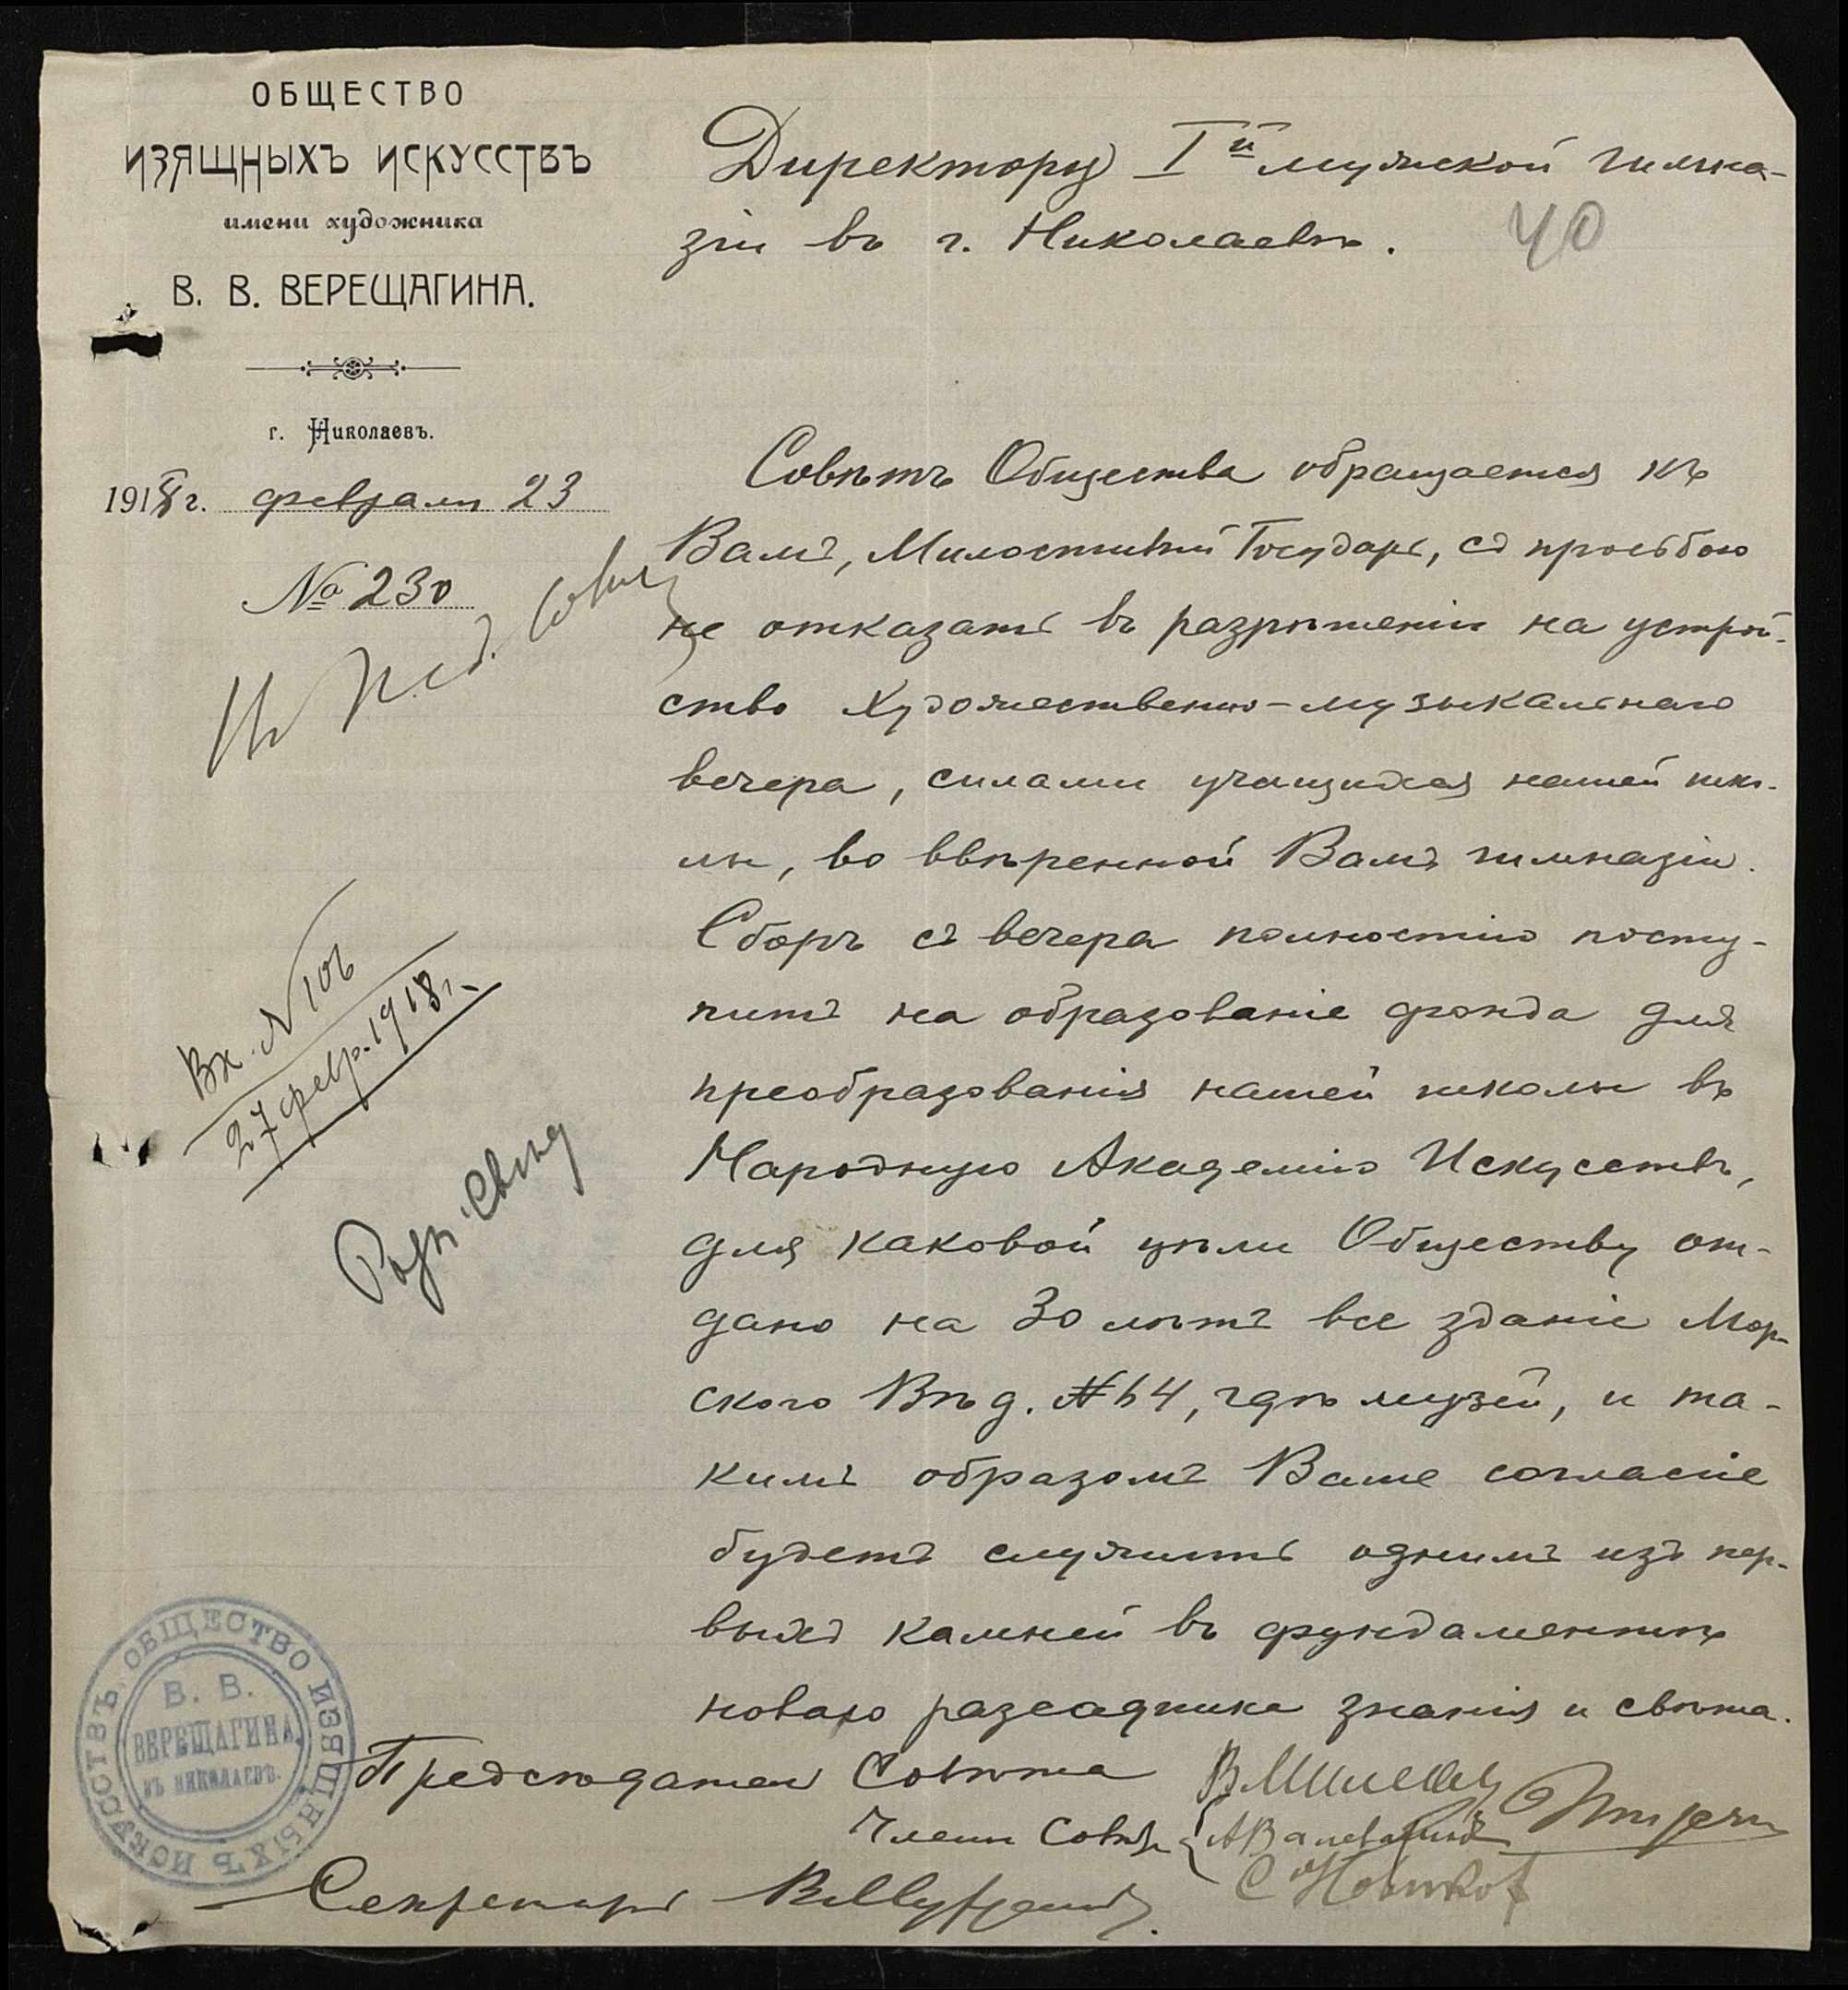 ОБЩЕСТВО
ИЗЯЩНЫХЪ ИСКУССТВЪ
имени художника
В. В. ВЕРЕЩАГИНА.
г. Николаевъ.
1918 г. февраля 23
№ 230
Въ Пед. Совѣт
Вх. № 106
27 февр. 1918 г.
Директору Iй мужской гимна-
зіи въ г. Николаевѣ.
40
Совѣтъ Общества обращается къ
Вамъ, Милостивый Государь, съ просьбою
не отказать въ разрѣшеніи на устрой-
ство Художественно-музыкальнаго
вечера, силами учащихся нашей шко-
лы, во ввѣренной Вамъ гимназіи.
Сборъ съ вечера полностію посту-
питъ на образованіе фонда для
преобразованія нашей школы въ
Народную Академію Искусствъ,
для каковой цѣли Обществу от-
дано на 30 лѣтъ все зданіе Мор-
ского Вѣд. № 64, гдѣ музей, и та-
кимъ образомъ Ваше согласіе
будетъ служить однимъ изъ пер-
выхъ камней въ фундаментѣ
новаго разсадника знанія и свѣта.
Предсѣдатель Совѣта
Члены Совѣта
С Новиков
Секретарь
ОБЩЕСТВО ИЗЯЩНЫХЪ ИСКУССТВЪ
В. В.
ВЕРЕЩАГИНА
ВЪ НИКОЛАЕВѢ.